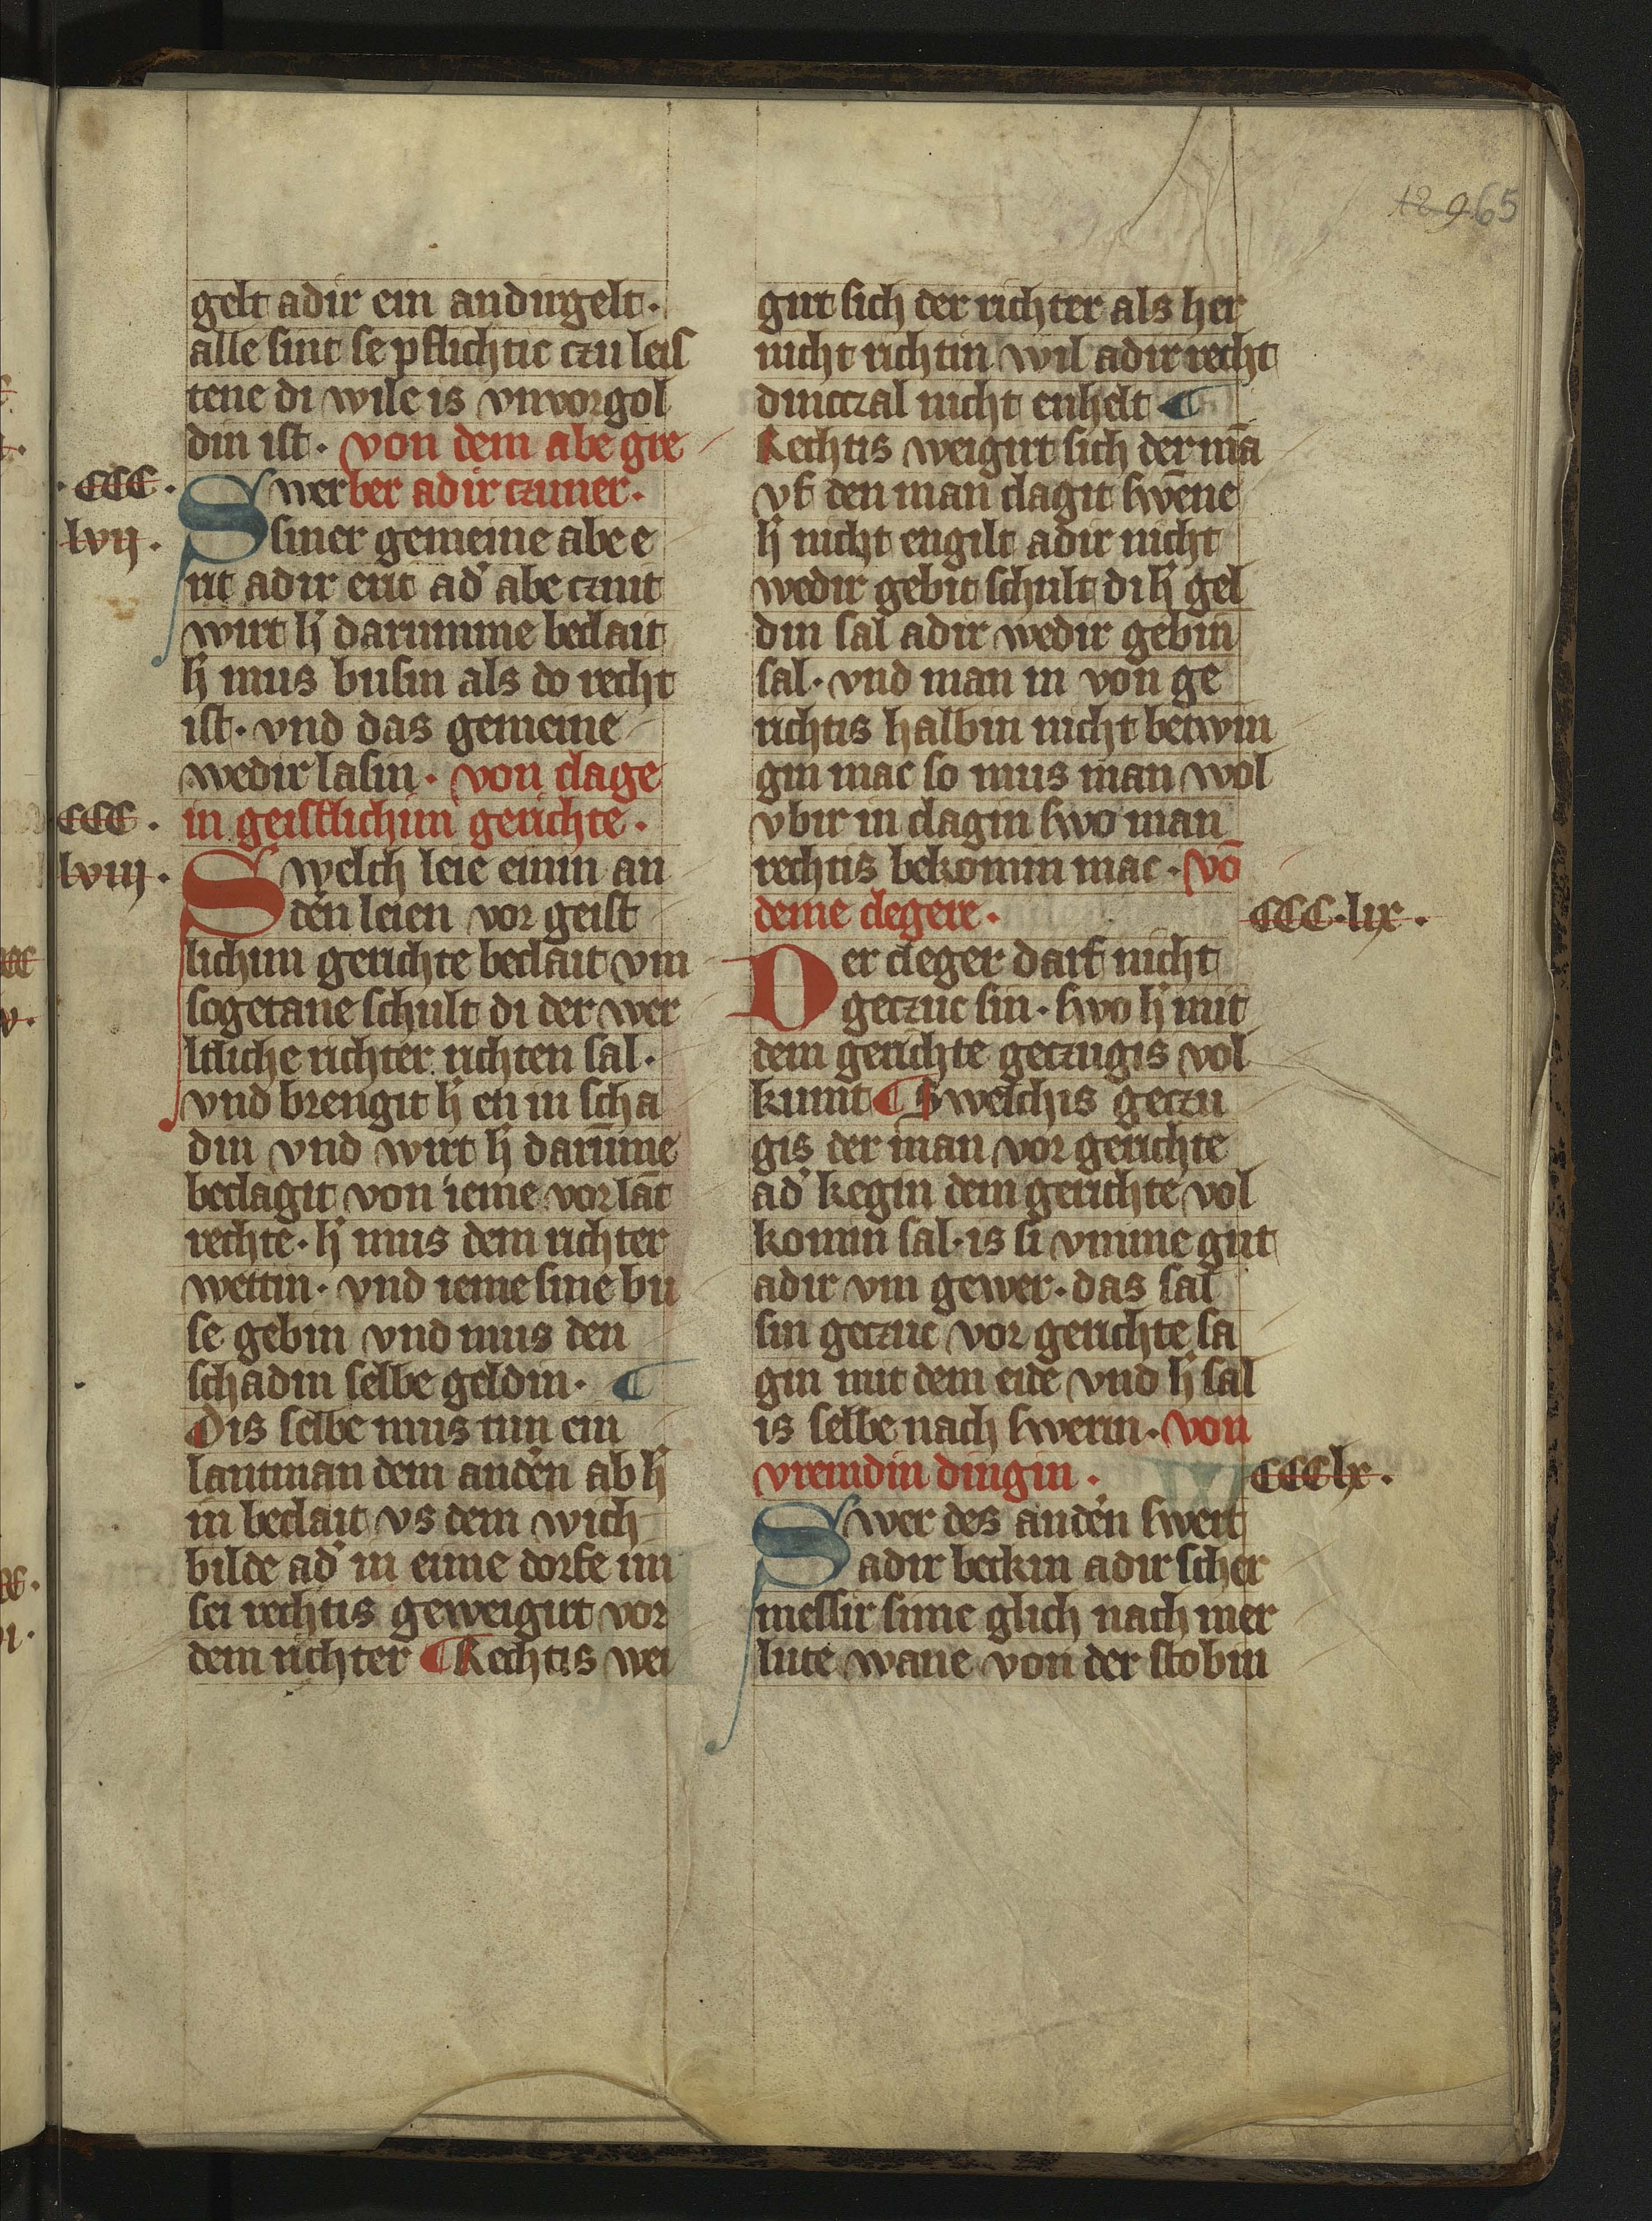 12965
gelt adir ein andirgelt·
alle sint se pflichtic czu leis
tene di wile is vnvorgol
din ist· von dem abe gre
·CCC· Swer ber adir czuner·
lvij· siner gemeine abe e
rit adir erit ad' abe czuit
wirt h' darumme beclait
h' mus busin als do recht
ist· vnd das gemeine
wedir lasin· von clage
CCC· in geistlichim gerichte·
lviij· Swelch leie einin an
d'en leien vor geist
lichim gerichte beclait vm
sogetane schult di der wer
ltliche richter richten sal·
vnd brengit h' en in scha
din vnd wirt h' darūme
beclagit von ieme vor lāt
rechte· h' mus dem richter
wettin· vnd ieme sine bu
se gebin vnd mus den
schadin selbe geldin· ¶
Dis selbe mus tun ein
lantman dem and'en ab h'
in beclait vs dem wich
bilde ad' in eime dorfe im
sei rechtis geweigirt vor
dem richter ¶ Rechtis wei
girt sich der richter als her
nicht richtin wil adir recht
dinczal nicht enhelt ¶
Rechtis weigirt sich der mā
vf den man clagit swēne
h' nicht engilt adir nicht
wedir gebit schult di h' gel
din sal adir wedir gebin
sal· vnd man in von ge
richtis halbin nicht betwin
gin mac so mus man wol
vbir in clagin swo man
rechtis bekomin mac· vō
deme clegere· CCC·lix·
Der cleger darf nicht
geczuc sin· swo h' mit
dem gerichte geczugis vol
kumt ¶ Swelchis geczu
gis der man vor gerichte
ad' kegin dem gerichte vol
komin sal· is si vmme gut
adir vm gewer· das sal
sin geczuc vor gerichte sa
gin mit dem eide vnd h' sal
is selbe nach swerin· von
vremdin dingin· CCClx·
Swer des and'en swert
adir beckin adir scher
messir sime glich nach mer
lute wane von der stobin